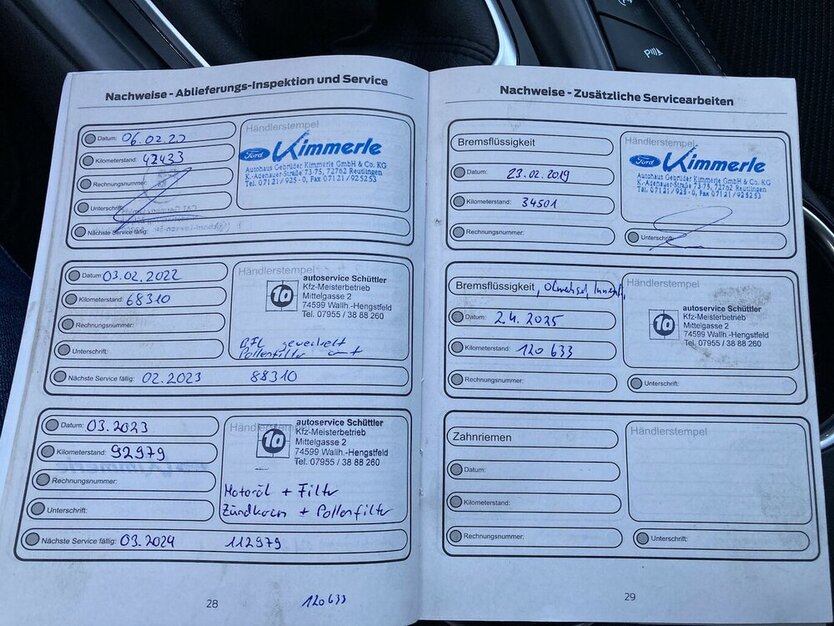 Nachweise - Ablieferungs-Inspektion und Service
Datum: 06.02.20
Kilometerstand: 42433
Rechnungsnummer:
Unterschrift:
Nächste Service fällig:
Händlerstempel
Ford Kimmerle
Autohaus Gebrüder Kimmerle GmbH & Co. KG
K.-Adenauer-Straße 73-75, 72762 Reutlingen
Tel. 07121/925-0, Fax 07121/925253
Datum: 03.02.2022
Kilometerstand: 68310
Rechnungsnummer:
Unterschrift:
Nächste Service fällig: 02.2023 88310
Händlerstempel
10
autoservice Schüttler
Kfz-Meisterbetrieb
Mittelgasse 2
74599 Wallh.-Hengstfeld
Tel. 07955 / 38 88 260
BFL gewechselt
Pollenfilter
Datum: 03.2023
Kilometerstand: 92979
Rechnungsnummer:
Unterschrift:
Nächste Service fällig: 03.2024 112979
Händlerstempel
10
autoservice Schüttler
Kfz-Meisterbetrieb
Mittelgasse 2
74599 Wallh.-Hengstfeld
Tel. 07955 / 38 88 260
Motoröl + Filter
Zündkerzen + Pollenfilter
28
120633
Nachweise - Zusätzliche Servicearbeiten
Bremsflüssigkeit
Datum: 23.02.2019
Kilometerstand: 34501
Rechnungsnummer:
Händlerstempel
Ford Kimmerle
Autohaus Gebrüder Kimmerle GmbH & Co. KG
K.-Adenauer-Straße 73-75, 72762 Reutlingen
Tel. 07121/925-0, Fax 07121/925253
Unterschrift:
Bremsflüssigkeit, Ölwechsel
Datum: 2.4.2025
Kilometerstand: 120 633
Rechnungsnummer:
Händlerstempel
10
autoservice Schüttler
Kfz-Meisterbetrieb
Mittelgasse 2
74599 Wallh.-Hengstfeld
Tel. 07955 / 38 88 260
Unterschrift:
Zahnriemen
Datum:
Kilometerstand:
Rechnungsnummer:
Händlerstempel
Unterschrift:
29